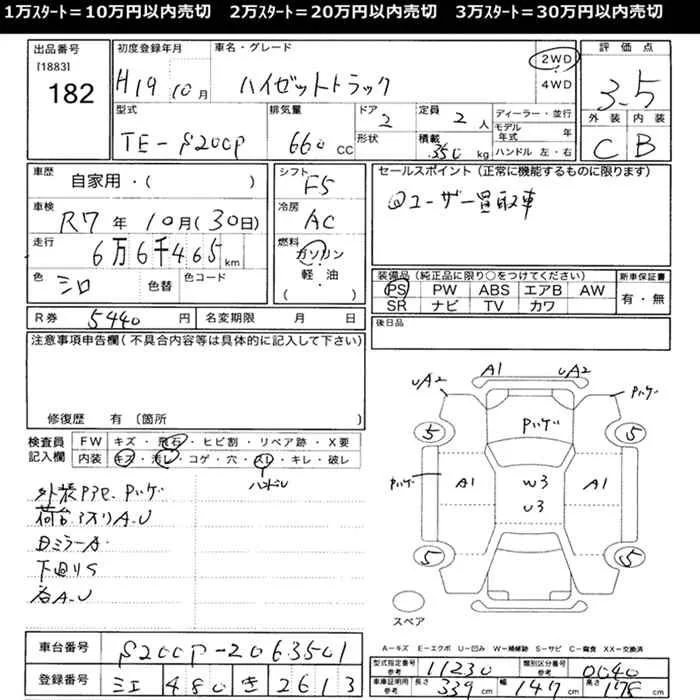 1万スタート＝10万円以内売切　2万スタート＝20万円以内売切　3万スタート＝30万円以内売切
出品番号
[1883]
182
初度登録年月
H19 10月
車名・グレード
ハイゼットトラック
2WD
4WD
評価点
3.5
外装 内装
C B
型式
TE-S200P
排気量
660 CC
ドア
2
形状
定員
2 人
積載
350 kg
ディーラー・並行
モデル年式 年
ハンドル 左・右
車歴
自家用・( )
車検
R7年10月(30日)
走行
6万6千465km
色
シロ
色替
色コード
シフト
F5
冷房
AC
燃料
ガソリン
軽・油
( )
セールスポイント（正常に機能するものに限ります）
ユーザー買取車
装備品（純正品に限り○をつけてください）
PS PW ABS エアB AW
SR ナビ TV カワ
新車保証書
有・無
R券 5440円
名変期限 月 日
後日品
注意事項申告欄（不具合内容等は具体的に記入して下さい）
修復歴 有〔箇所 〕
検査員記入欄
FW キズ・飛石・ヒビ割・リペア跡・X要
内装 キズ・汚レ・コゲ・穴・スレ・キレ・破レ
ハンドル
荷台 A.U
下廻りS
A1 UA2
UA2
5 5
A1 W3 A1
U3
5 5
スペア
A＝キズ E＝エクボ U＝凹み W＝補修跡 S＝サビ C＝腐食 XX＝交換済
車台番号
S200P-2063501
登録番号
三重 480 き 2613
型式指定番号
参考
11230
類別区分番号
参考
0040
車庫証明用
参考
長さ 339 cm 幅 147 cm 高さ 178 cm